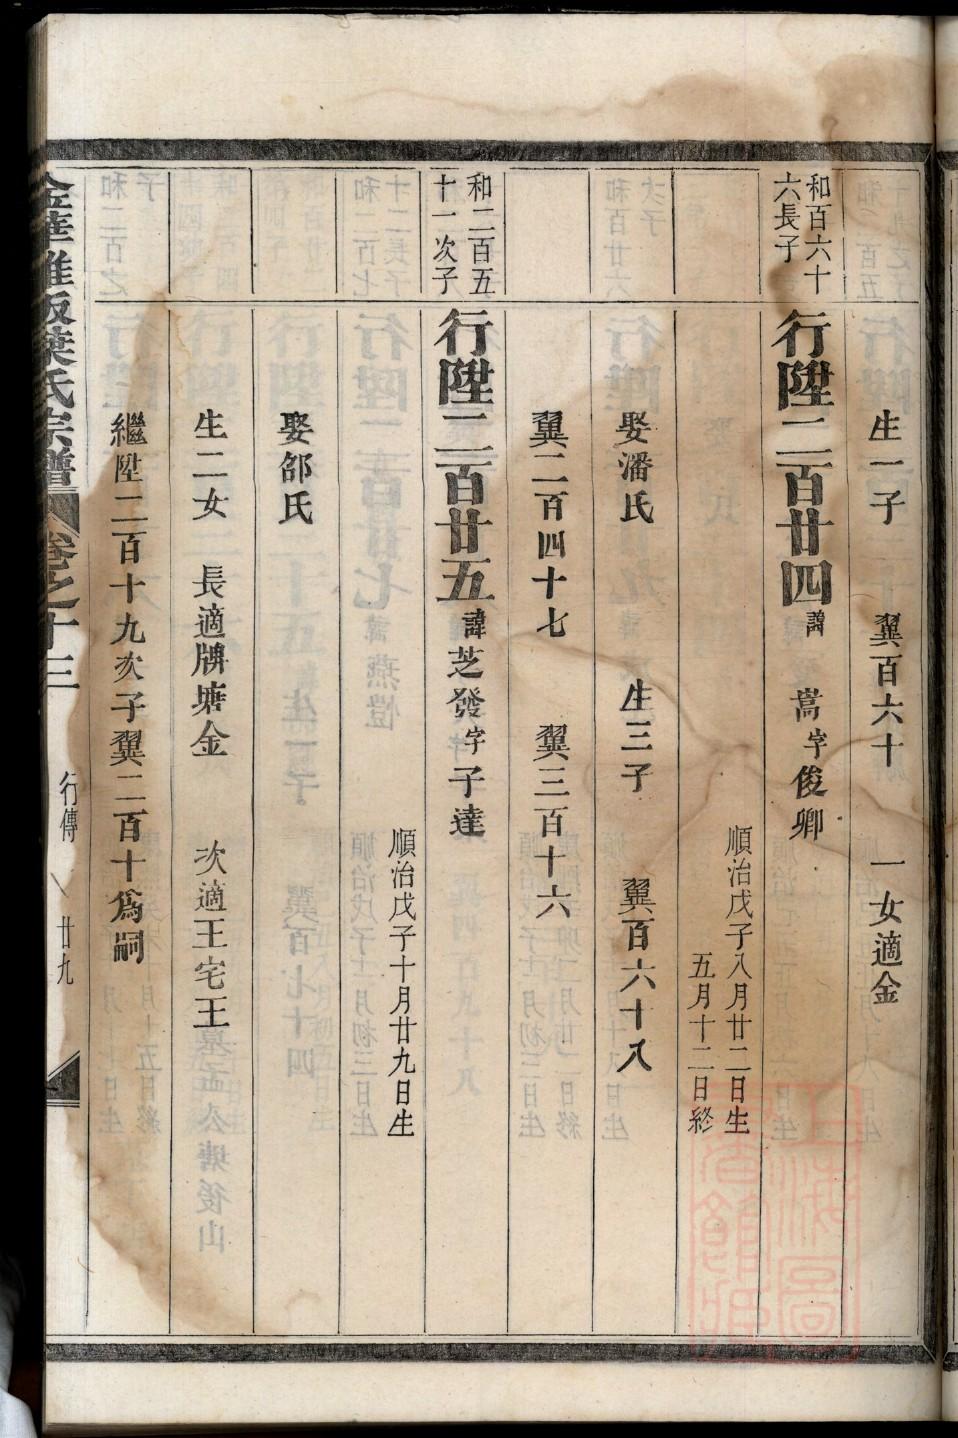 生一子　翼百六十　一女適金
和百六十
六長子
行陞二百廿四 諱嵩 字俊卿
順治戊子八月廿二日生
五月十二日終
娶潘氏　生三子　翼百六十八
翼二百四十七　翼三百十六
和二百五
十一次子
行陞二百廿五 諱芝發 字子達
順治戊子十月廿九日生
娶邵氏
生二女　長適牌塘金　次適王宅王
繼陞二百十九次子翼二百十爲嗣
葉氏宗譜 卷之十三 行傳 廿九